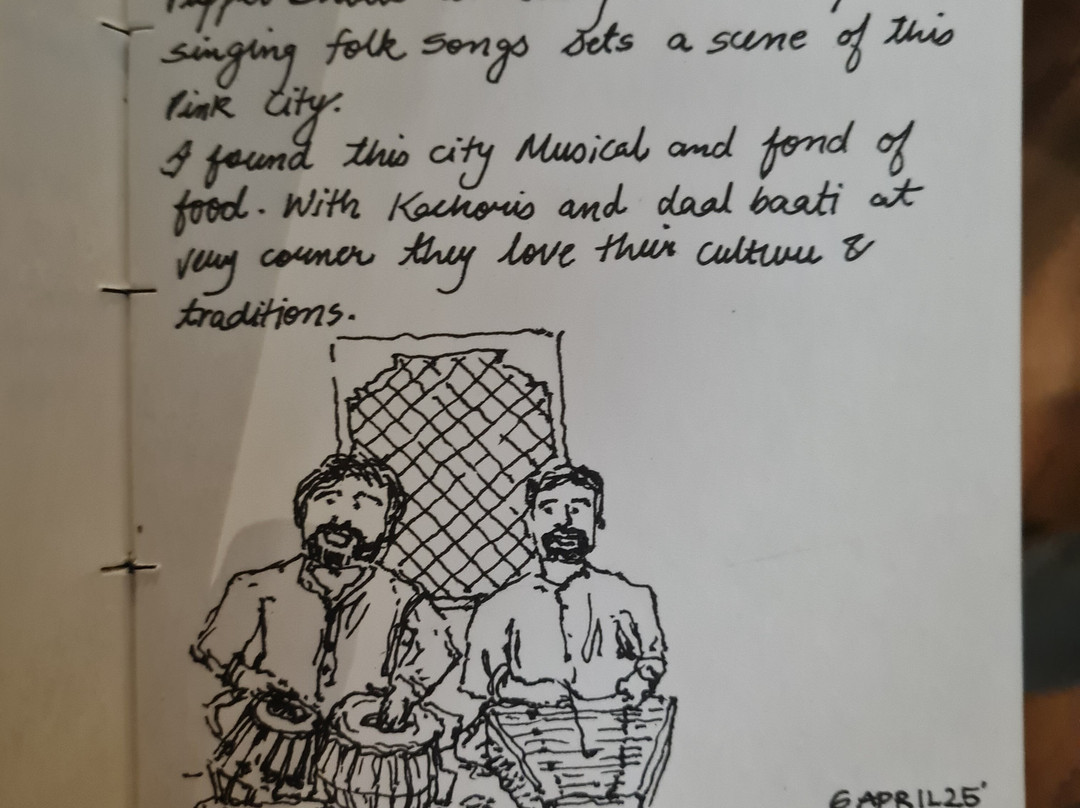 singing folk songs sets a scene of this
Pink City.
I found this city Musical and fond of
food. With Kachoris and daal baati at
very corner they love their culture &
traditions.
6 APRIL 25'